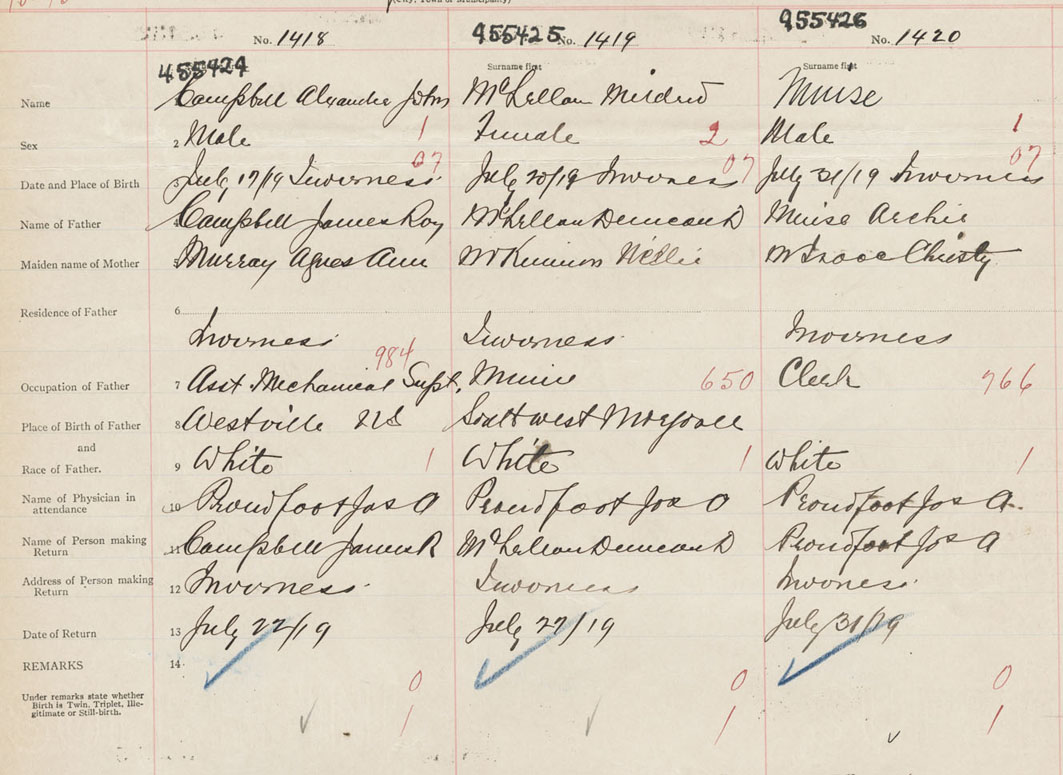 No. 1418 955425 No. 1419 955426 No. 1420
455424 Surname first Surname first
Name Campbell Alexander John McLellan Mildred Muise
Sex 2 Male 1 Female 2 Male 1
07 07 07
Date and Place of Birth 3 July 17/19 Inverness July 20/19 Inverness July 31/19 Inverness
Name of Father 4 Campbell James Roy McLellan Duncan D Muise Archie
Maiden name of Mother 5 Murray Agnes Ann McKinnon Nellie McIsaac Christy
Residence of Father 6
Inverness Inverness Inverness
984
Occupation of Father 7 Asst Mechanical Supt. Miner 650 Clerk 766
Place of Birth of Father 8 Westville NS Southwest Margaree
and
Race of Father. 9 White 1 White 1 White 1
Name of Physician in
attendance 10 Proudfoot Jas A Proudfoot Jos A Proudfoot Jos A.
Name of Person making
Return 11 Campbell James R McLellan Duncan D Proudfoot Jos A
Address of Person making
Return 12 Inverness Inverness Inverness
Date of Return 13 July 22/19 July 27/19 July 31/19
REMARKS 14
Under remarks state whether
Birth is Twin, Triplet, Ille-
gitimate or Still-birth.
0 0 0
1 1 1